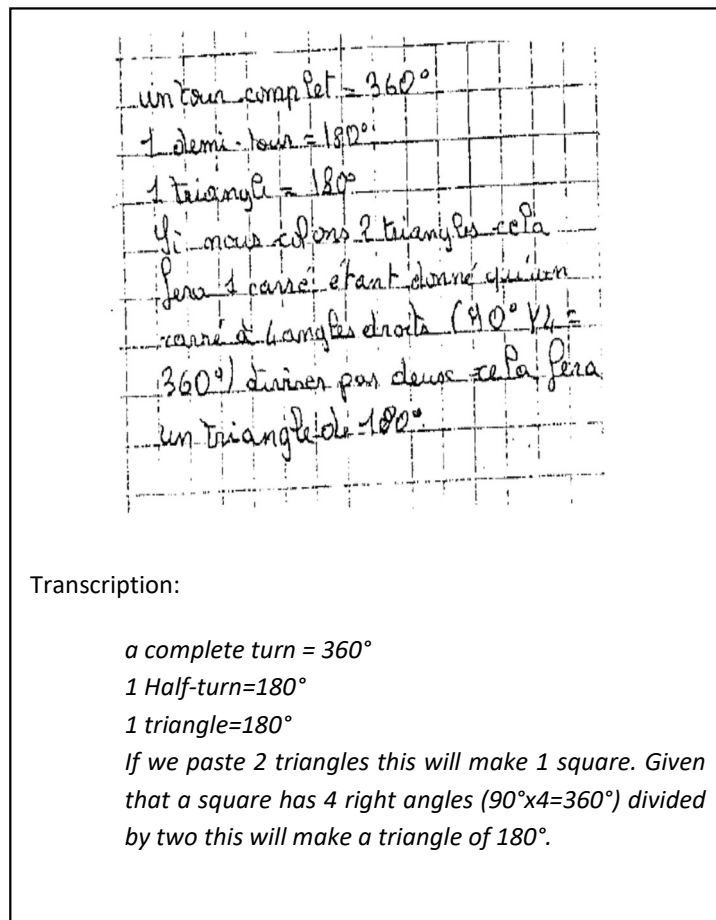 un tour complet = 360°
1 demi-tour = 180°
1 triangle = 180°
Si nous colons 2 triangles cela
fera 1 carré étant donné qu'un
carré à 4 angles droits (90° X 4 =
360°) diviser par deux cela fera
un triangle de 180°.
Transcription:
a complete turn = 360°
1 Half-turn=180°
1 triangle=180°
If we paste 2 triangles this will make 1 square. Given
that a square has 4 right angles (90°x4=360°) divided
by two this will make a triangle of 180°.